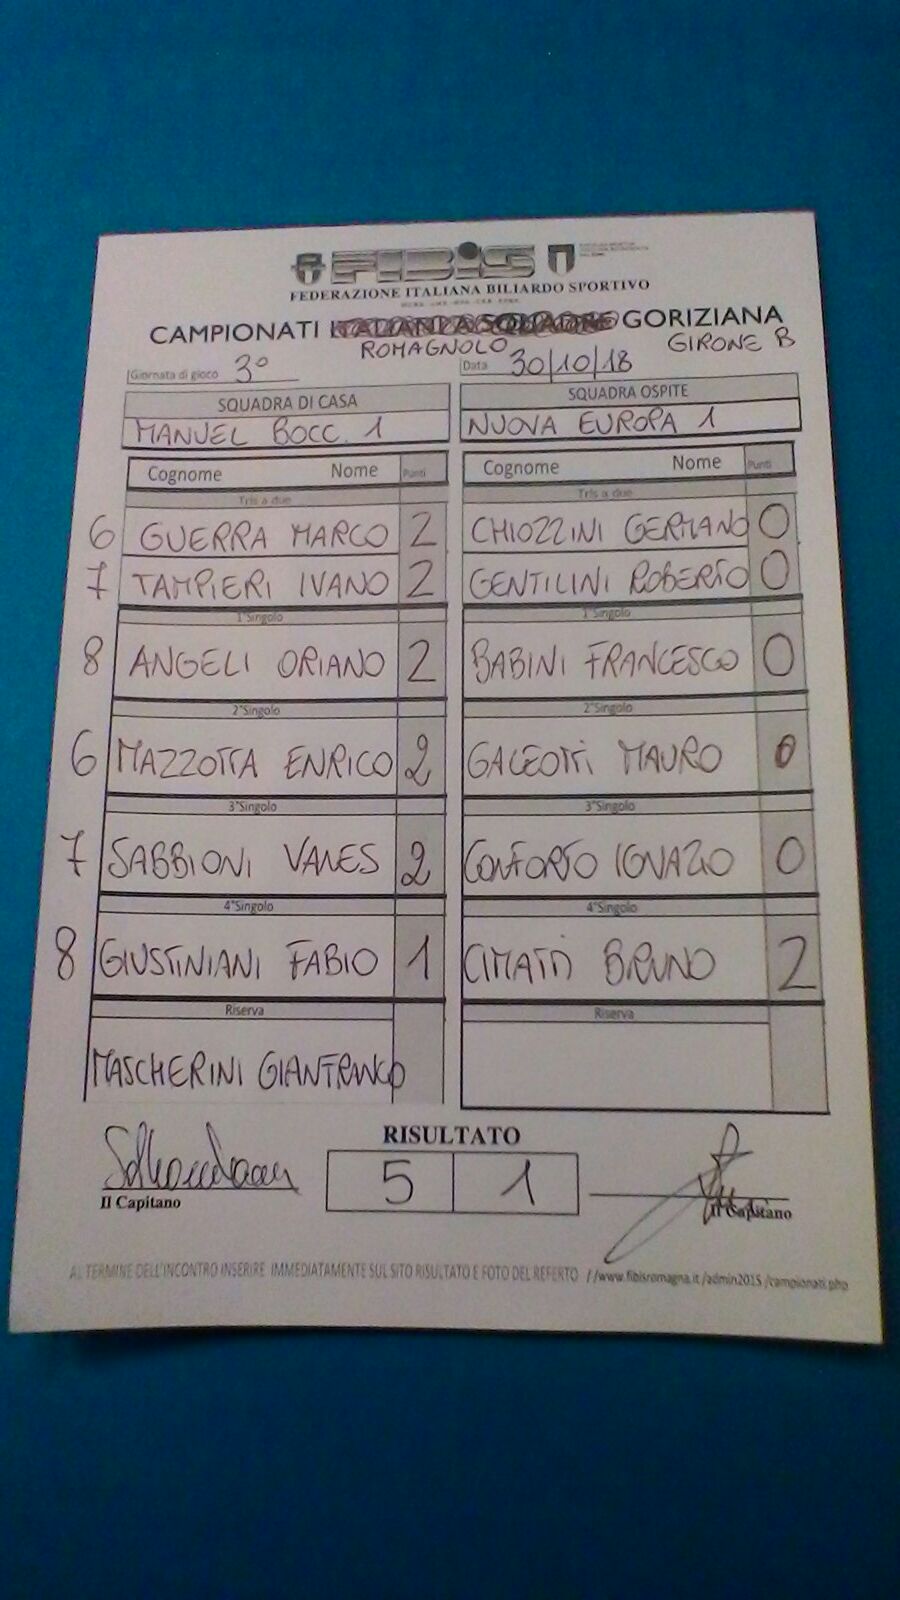 FIBIS
FEDERAZIONE ITALIANA BILIARDO SPORTIVO
CAMPIONATI ITALIANI A SQUADRE GORIZIANA
ROMAGNOLO GIRONE B
Giornata di gioco 3° Data 30/10/18
SQUADRA DI CASA SQUADRA OSPITE
MANUEL BOCC. 1 NUOVA EUROPA 1
Cognome Nome Punti Cognome Nome Punti
Tris a due Tris a due
6 GUERRA MARCO 2 CHIOZZINI GERMANO 0
7 TAMPIERI IVANO 2 GENTILINI ROBERTO 0
1°Singolo 1°Singolo
8 ANGELI ORIANO 2 BABINI FRANCESCO 0
2°Singolo 2°Singolo
6 MAZZOTTA ENRICO 2 GALEOTTI MAURO 0
3°Singolo 3°Singolo
7 SABBIONI VANES 2 CONFORTO IGNAZIO 0
4°Singolo 4°Singolo
8 GIUSTINIANI FABIO 1 CIMATTI BRUNO 2
Riserva Riserva
MASCHERINI GIANFRANCO
RISULTATO
5 1
Il Capitano Il Capitano
AL TERMINE DELL'INCONTRO INSERIRE IMMEDIATAMENTE SUL SITO RISULTATO E FOTO DEL REFERTO //www.fibisromagna.it/admin2015/campionati.php